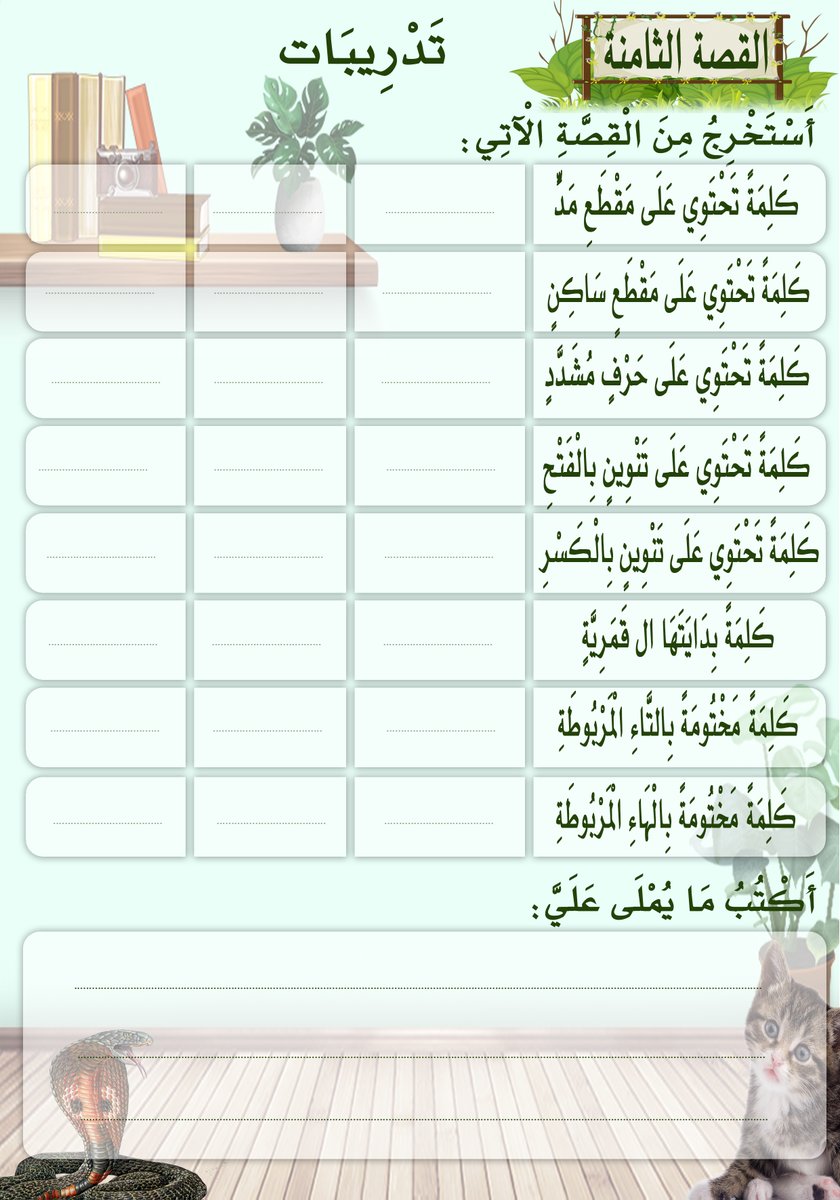 القصة الثامنة
تَدْرِيبَات
أَسْتَخْرِجُ مِنَ الْقِصَّةِ الْآتِي:
كَلِمَةً تَحْتَوِي عَلَى مَقْطَعِ مَدٍّ
كَلِمَةً تَحْتَوِي عَلَى مَقْطَعٍ سَاكِنٍ
كَلِمَةً تَحْتَوِي عَلَى حَرْفٍ مُشَدَّدٍ
كَلِمَةً تَحْتَوِي عَلَى تَنْوِينٍ بِالْفَتْحِ
كَلِمَةً تَحْتَوِي عَلَى تَنْوِينٍ بِالْكَسْرِ
كَلِمَةً بِدَايَتَهَا ال قَمَرِيَّةٍ
كَلِمَةً مَخْتُومَةً بِالتَّاءِ الْمَرْبُوطَةِ
كَلِمَةً مَخْتُومَةً بِالْهَاءِ الْمَرْبُوطَةِ
أَكْتُبُ مَا يُمْلَى عَلَيَّ: